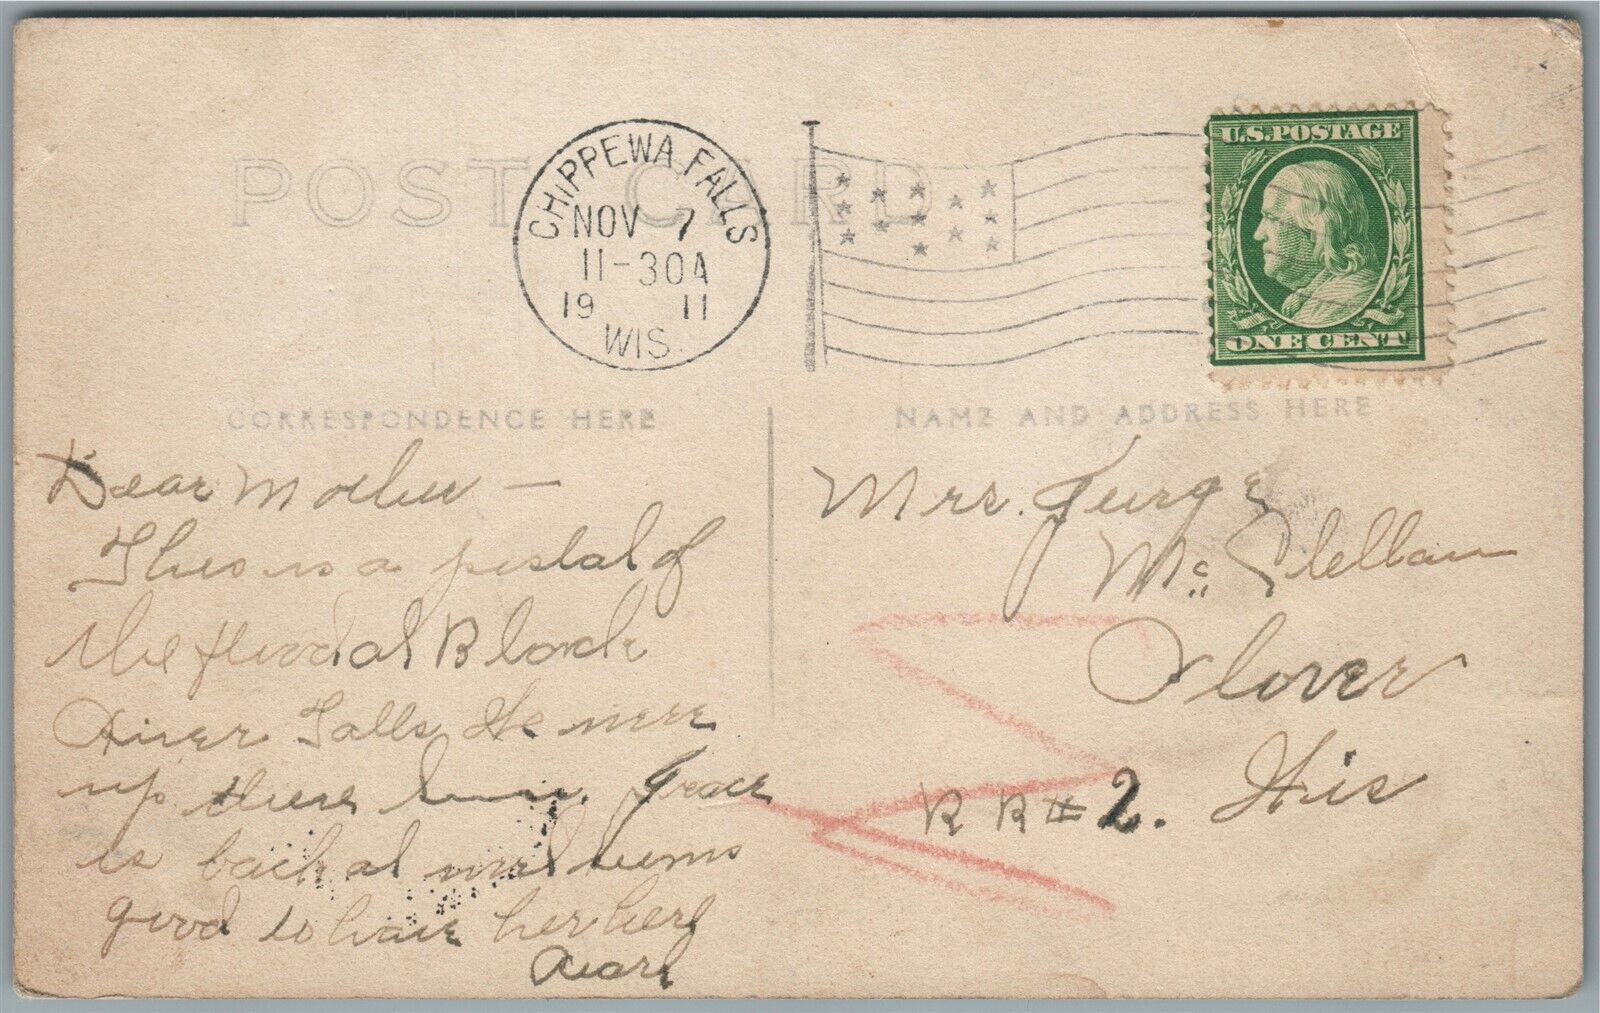 POST CARD
CHIPPEWA FALLS
NOV 7
11-30A
19 11
WIS.
U.S. POSTAGE
ONE CENT
CORRESPONDENCE HERE
NAME AND ADDRESS HERE
Dear Mother —
This is a postal of
the flood at Black
River Falls. He were
up there Grace
is back at and seems
good to have her here
Pearl
Mrs. George
McClellan
Plover
Wis
R R # 2.